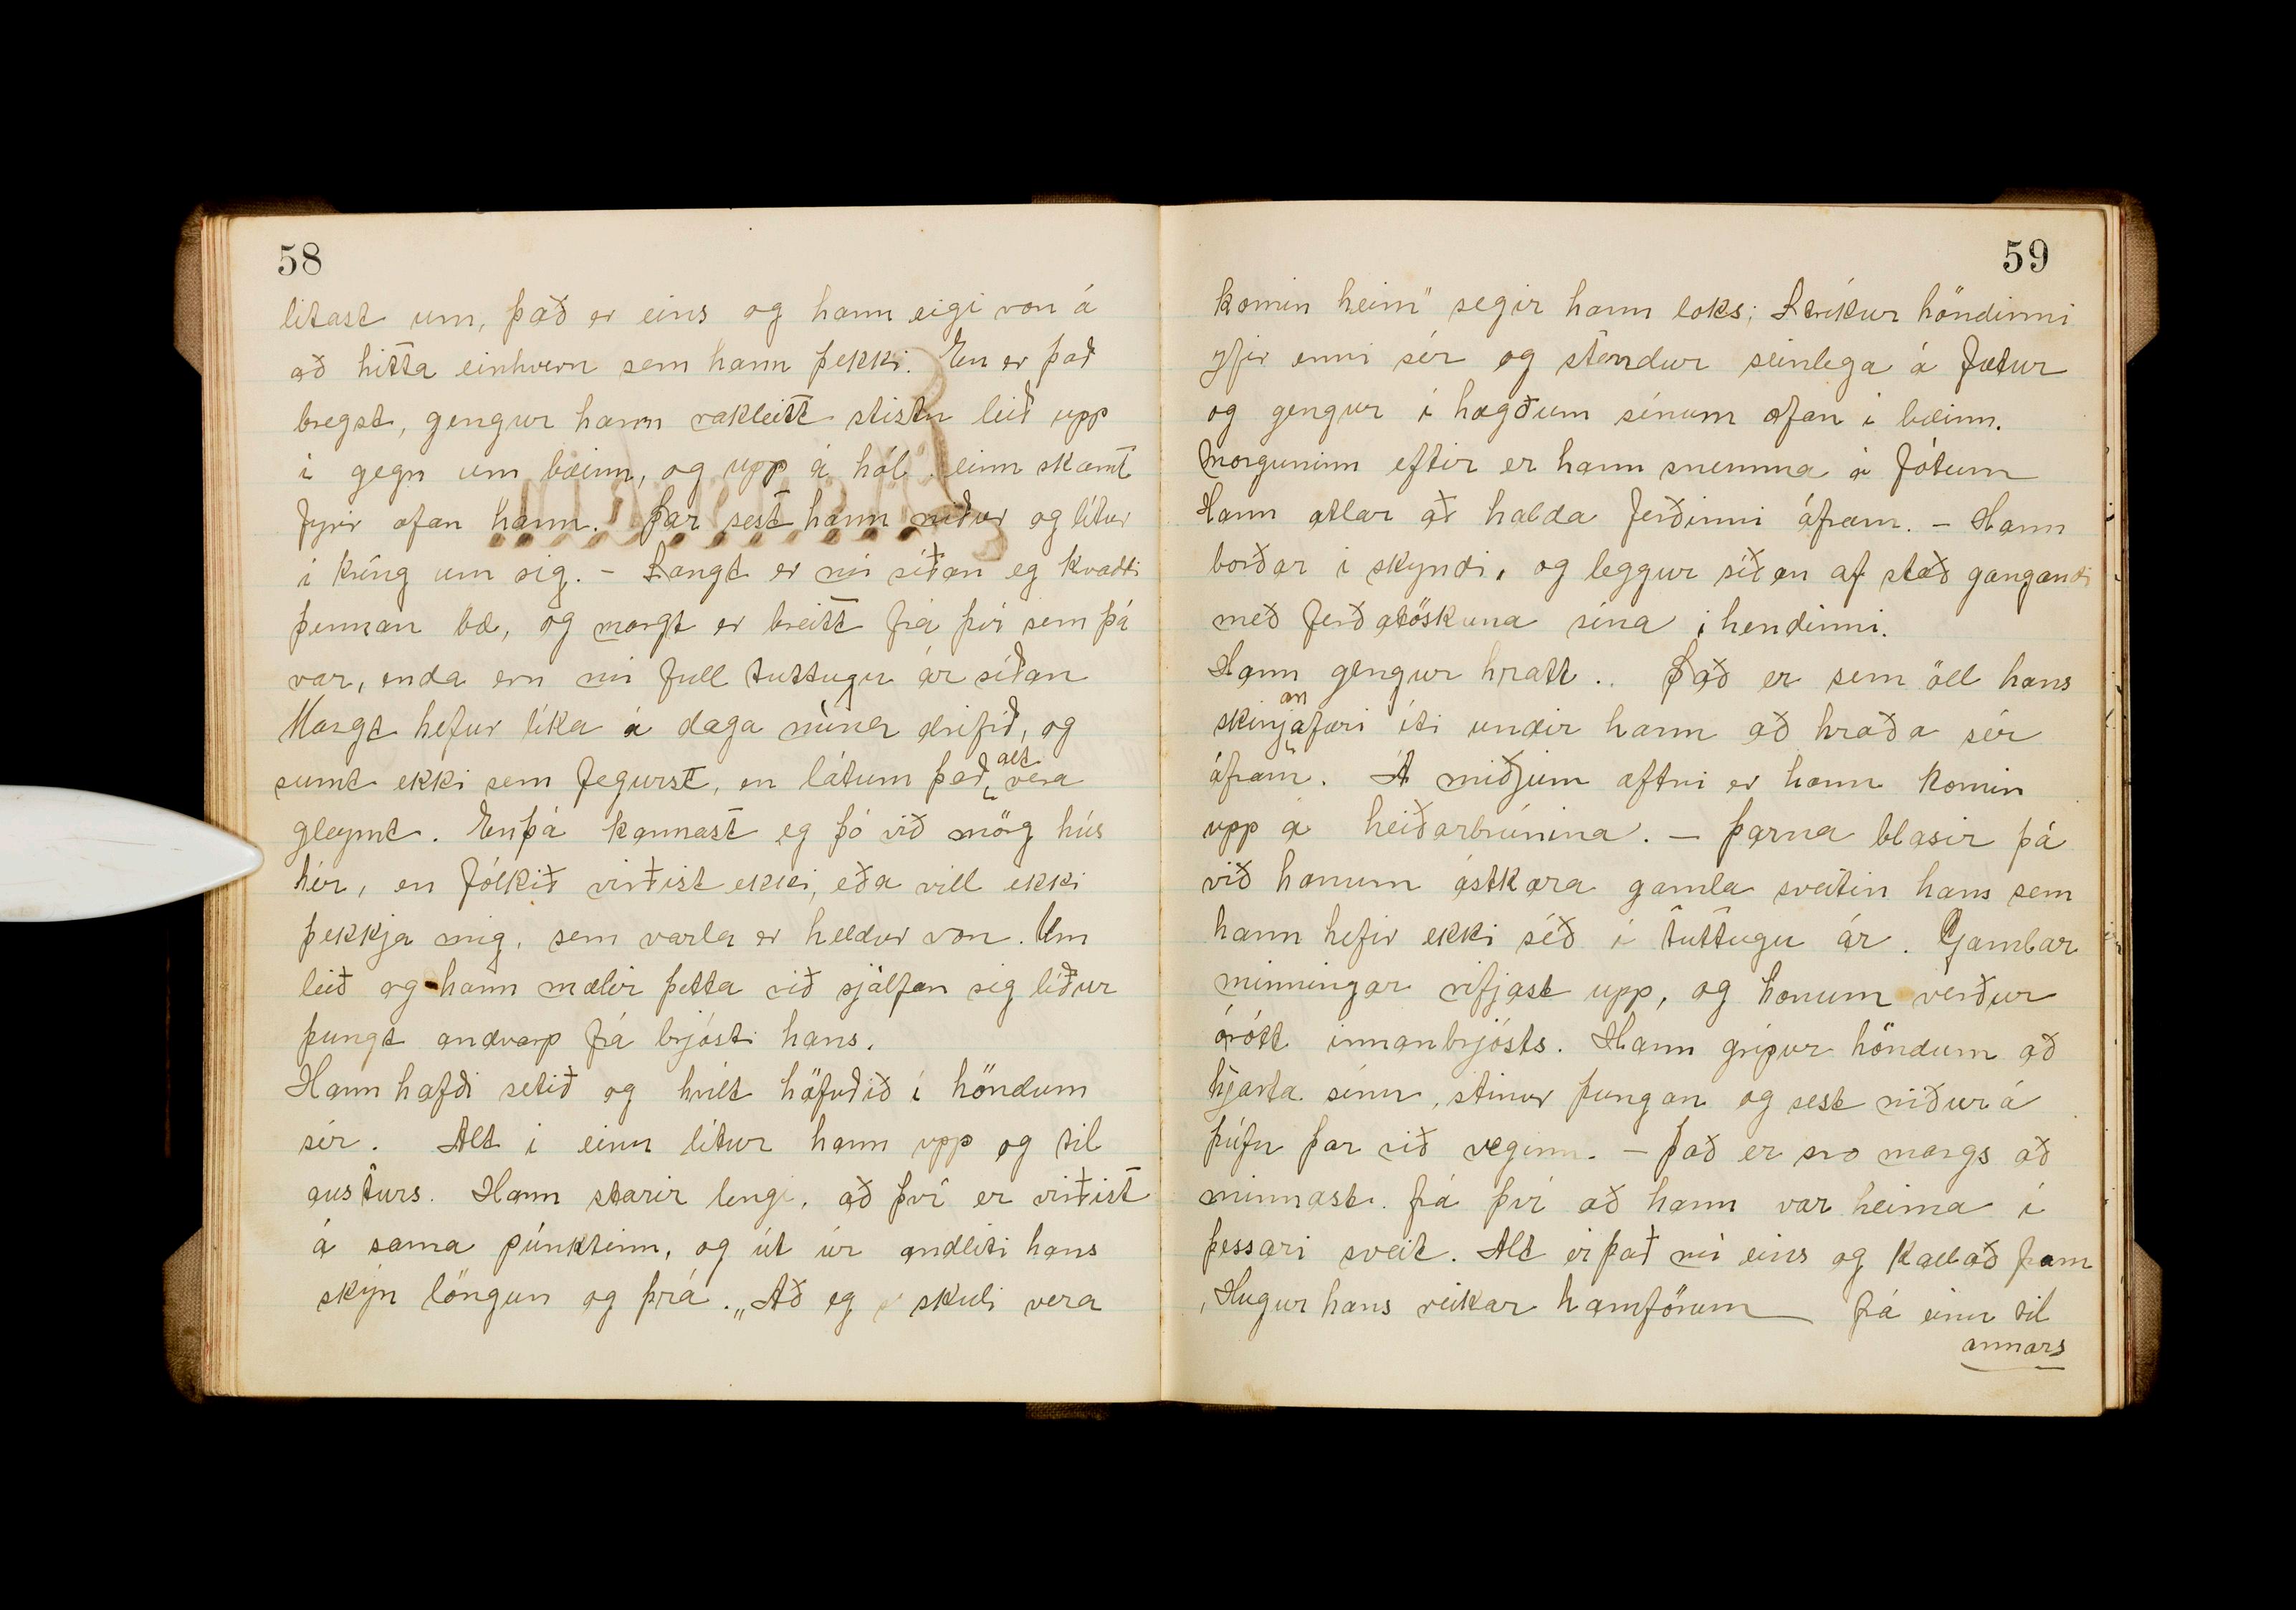 58
litast um, það er eins og hann eigi von á
að hitta einhvern sem hann þekki. En er það
bregst, gengur hann rakleitt stistu leið upp
í gegn um bæinn, og upp á hól einn skamt
fyrir ofan hann. Þar sest hann niður og lítur
í kring um sig. – Langt er nú síðan eg kvaddi
þennan bæ, og margt er breitt frá því sem þá
var, enda eru nú full tuttugu ár síðan
Margt hefur líka á daga mína drifið, og
sumt ekki sem fegurst, en látum það alt vera
gleymt. Enþá kannast eg þó við mörg hús
hér, en fólkið virðist ekki, eða vill ekki
þekkja mig, sem varla er heldur von. Um
leið og hann mælir þetta við sjálfan sig líður
þungt andvarp frá brjósti hans.
Hann hafði setið og hvílt höfuðið í höndum
sér. Alt í einu lítur hann upp og til
austurs. Hann starir lengi, að því er virðist
á sama púnktinn, og út úr andliti hans
skýn löngun og þrá. „Að eg skuli vera
59
komin heim" segir hann loks; Stríkur höndinni
yfir enni sér og stendur seinlega á fætur
og gengur í hægðum sínum ofan í bæinn.
Morguninn eftir er hann snemma á fótum
Hann ætlar að halda ferðinni áfram. – Hann
borðar í skyndi, og leggur síðan af stað gangandi
með ferðatöskuna sína í hendinni.
Hann gengur hratt.. Það er sem öll hans
skinjanafæri íti undir hann að hraða sér
áfram. Á miðjum aftni er hann komin
upp á heiðarbrúnina. – Þarna blasir þá
við honum ástkæra gamla sveitin hans sem
hann hefir ekki séð í tuttugu ár. Gamlar
minningar rifjast upp, og honum verður
órótt innanbrjósts. Hann grípur höndum að
hjarta sínu, stinur þungan og sest niður á
þúfu þar við veginn. – Það er svo margs að
minnast frá því að hann var heima í
þessari sveit. Alt er það nú eins og kallað fram
, Hugur hans reikar hamförum frá einu til
annars